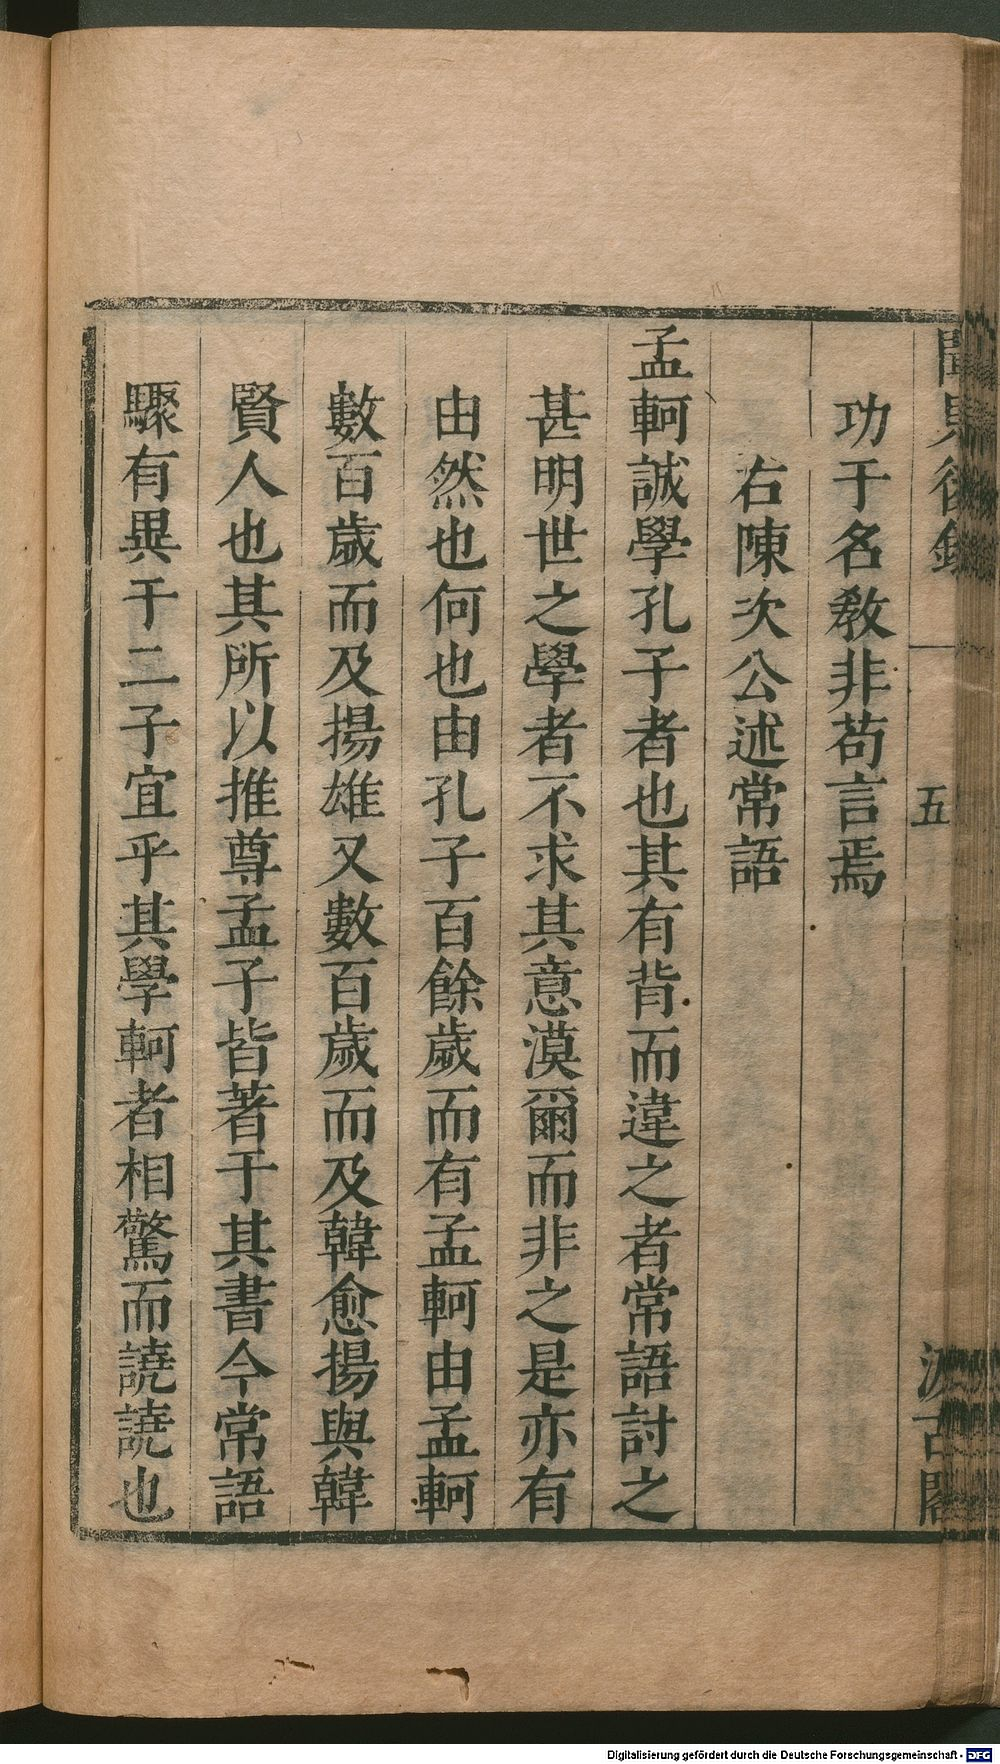 聞見後錄
五
汲古閣
功于名敎非苟言焉
右陳次公述常語
孟軻誠學孔子者也其有背而違之者常語討之
甚明世之學者不求其意漠爾而非之是亦有
由然也何也由孔子百餘歲而有孟軻由孟軻
數百歲而及揚雄又數百歲而及韓愈揚與韓
賢人也其所以推尊孟子皆著于其書今常語
驟有異于二子宜乎其學軻者相驚而譊譊也
Digitalisierung gefördert durch die Deutsche Forschungsgemeinschaft - DFG